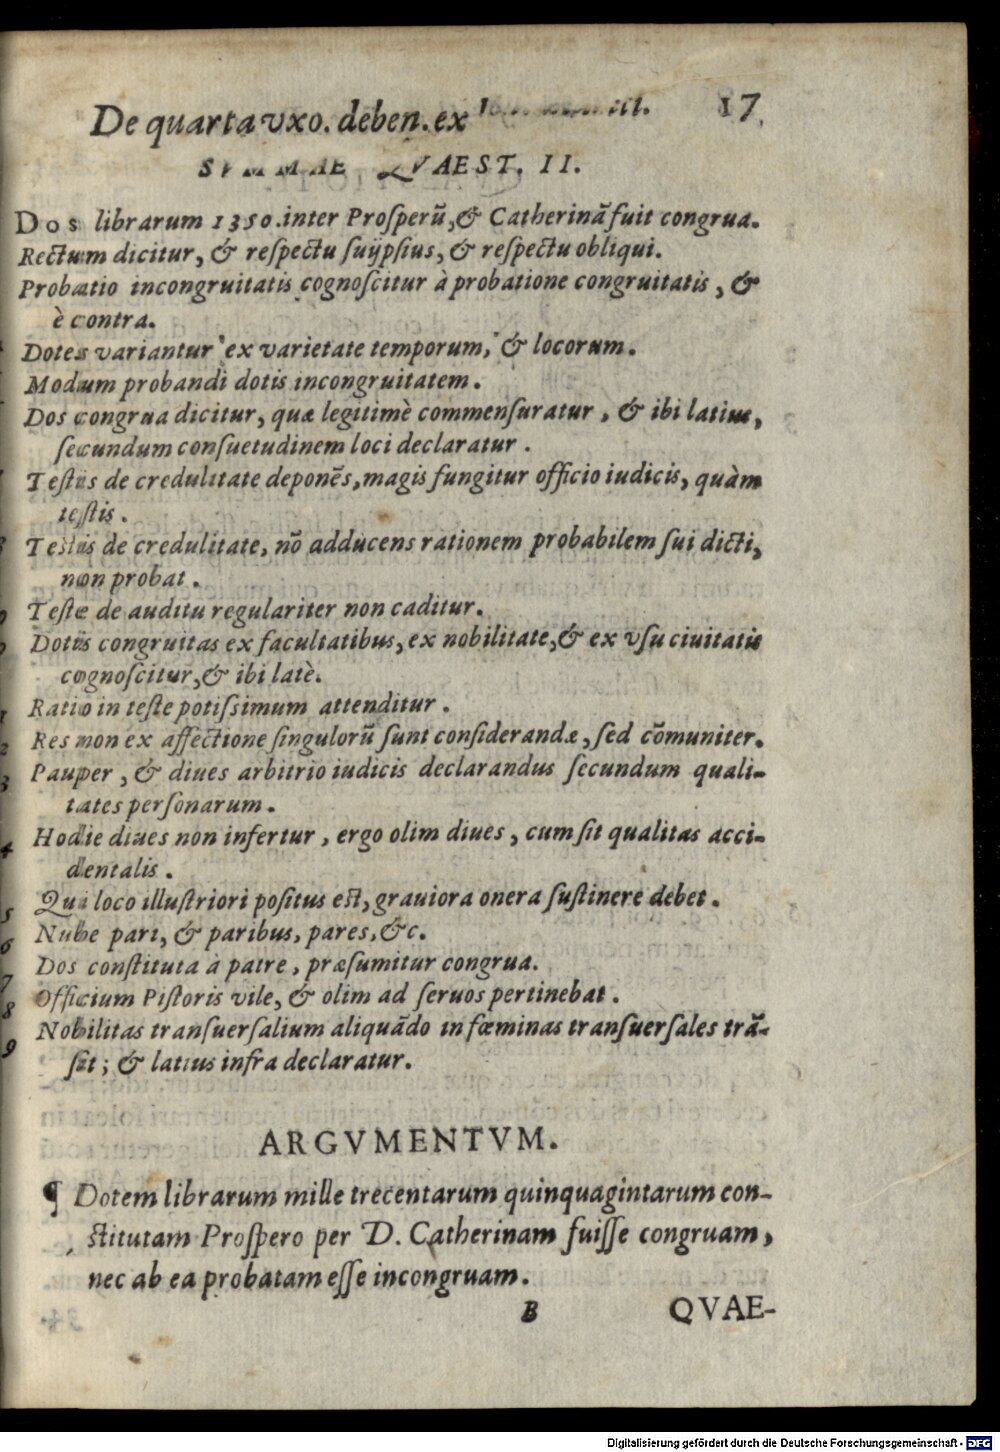 De quarta vxo. deben. ex 17
SVMMAE QVAEST. II.
Dos librarum 1350. inter Prosperū, & Catherinā fuit congrua.
Rectum dicitur, & respectu suijpsius, & respectu obliqui.
Probatio incongruitatis cognoscitur à probatione congruitatis, &
è contra.
Dotes variantur ex varietate temporum, & locorum.
Modum probandi dotis incongruitatem.
Dos congrua dicitur, quæ legitimè commensuratur, & ibi latius,
secundum consuetudinem loci declaratur.
Testis de credulitate deponēs, magis fungitur officio iudicis, quàm
testis.
Testis de credulitate, nō adducens rationem probabilem sui dicti,
non probat.
Teste de auditu regulariter non caditur.
Dotis congruitas ex facultatibus, ex nobilitate, & ex vsu ciuitatis
cognoscitur, & ibi latè.
Ratio in teste potissimum attenditur.
Res non ex affectione singulorū sunt considerandæ, sed cōmuniter.
Pauper, & diues arbitrio iudicis declarandus secundum quali-
tates personarum.
Hodie diues non infertur, ergo olim diues, cum sit qualitas acci-
dentalis.
Qui loco illustriori positus est, grauiora onera sustinere debet.
Nube pari, & paribus, pares, &c.
Dos constituta à patre, præsumitur congrua.
Officium Pistoris vile, & olim ad seruos pertinebat.
Nobilitas transuersalium aliquādo in fœminas transuersales trā-
sit; & latius infra declaratur.
ARGVMENTVM.
¶ Dotem librarum mille trecentarum quinquagintarum con-
stitutam Prospero per D. Catherinam fuisse congruam,
nec ab ea probatam esse incongruam.
B QVAE-
Digitalisierung gefördert durch die Deutsche Forschungsgemeinschaft - DFG